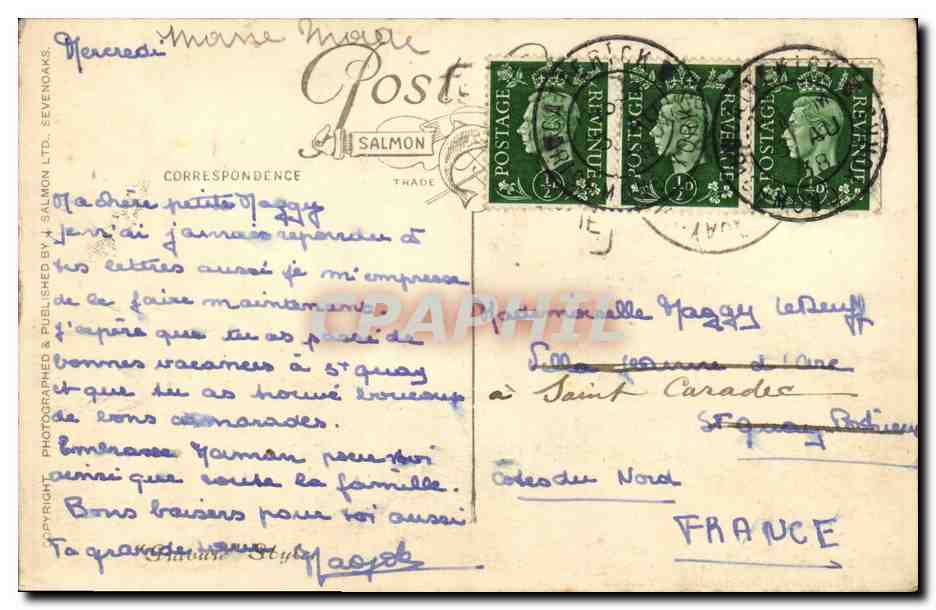 Mercredi
Post
SALMON
CORRESPONDENCE
TRADE
Ma chère petite Maggy
Je n'ai jamais repondu à
tes lettres aussi je m'empresse
de le faire maintenant.
J'espère que tu as passé de
bonnes vacances à St quay
et que tu as trouvé boucoup
de bons camarades.
Embrasse Maman pour moi
ainsi que toute la famille.
Bons baisers pour toi aussi
Ta grande
"Private Style"
COPYRIGHT. PHOTOGRAPHED & PUBLISHED BY J. SALMON LTD. SEVENOAKS.
POSTAGE REVENUE ½D
POSTAGE REVENUE ½D
POSTAGE REVENUE ½D
CPAPHIL
Mademoiselle Maggy LeDeuff
Villa Jeanne d'Arc
à Saint Caradec
St quay Portrieux
Côtes du Nord
FRANCE